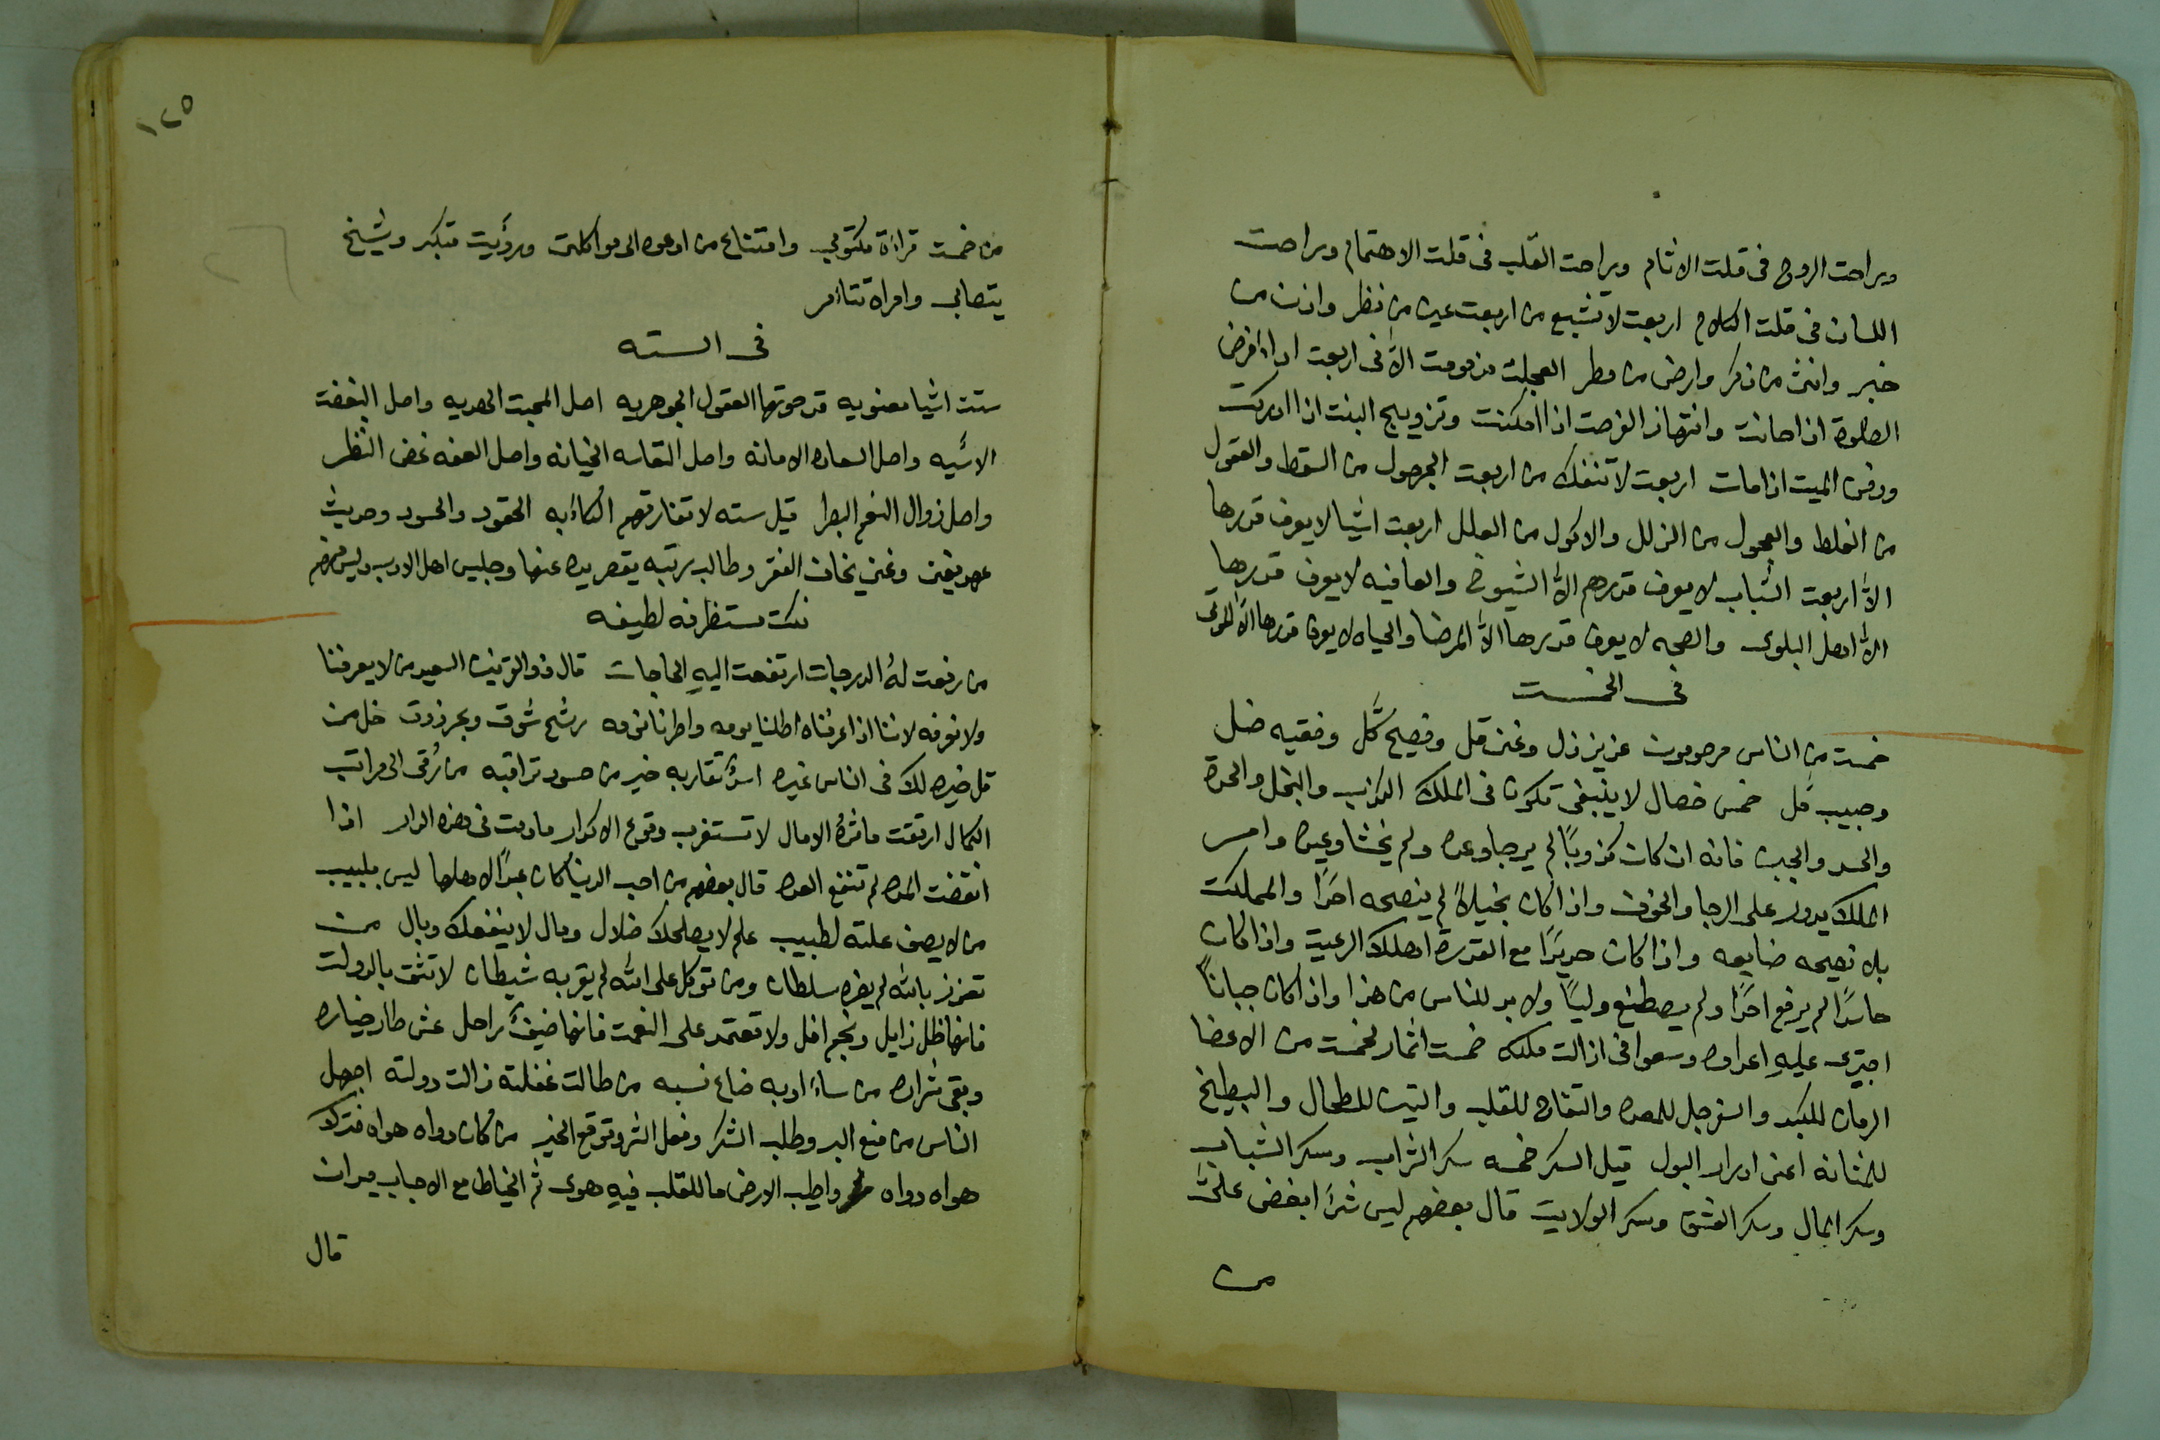 وراحت الروح فى قلت الاثام وراحت القلب فى قلت الاهتمام وراحت
اللسان فى قلت الكلام اربعت لا تشبع من اربعت عين من نظر واذن من
خبر وانثى من ذكر وارض من مطر العجلت مذمومت الّا فى اربعت اداء الفرض
الصلوة اذا حانت وانتهاز الفرصت اذا امكنت وتزويج البنت اذا ادركت
ودفن الميت اذا مات اربعت لا تنفك من اربعت الجهول من السقط والقول
من الغلط والعجول من الزلل والاكول من العلل اربعت اشيا لا يعرف قدرها
الّا اربعت الشباب لا يعرف قدرهم الّا الشيوخ والعافيه لا يعرف قدرها
الّا اهل البلوى والصحه لا يعرف قدرها الّا المرضا والحياه لا يعرف قدرها الّا الموتى
فى الخمست
خمست من الناس مرحومون عزيز ذل وغنى قل وفصيح كَّل وفقيه ضل
وحبيب مل خمس خصال لا ينبغى تكون فى الملك الكذب والبخل والحدة
والحسد والجبن فانه ان كان كذوبًا لم يرجا وعده ولم يخشا وعيده وامر
الملك يدور على الرجا والخوف واذا كان بخيلاً لم ينصحه احدًا والمملكت
بلا نصيحه ضايعه واذا كان حديدًا مع القدرة اهلك الرعيت واذا كان
حاسدًا لم يرفع احدًا ولم يصطنع وليًا ولا بد للناس من هذا واذا كان جبانًا
اجترى عليهِ اعداوه وسعوا فى ازالت ملكه خمست اثمار لخمست من الاعضا
الرمان للكبد والسفرجل للمعده والتفاح للقلب والتين للطحال والبطيخ
للمثانه اعنى ادرار البول قيل السكر خمسه سكر الشراب وسكر الشباب
وسكر المال وسكر العشق وسكر الولايت قال بعضهم ليس شئ ابغض علىّ
من
١٢٥
من خمست قراءة مكتوبى وامتناع من ادعوه الى مواكلتى ورؤيت متكبر وشيخ
يتصابى وامراة تتاءمر
فى السته
ستت اشيا معنويه قد حوتها العقول الجوهريه اصل المحبت الهديه واصل البغضت
الاسّيه واصل السعاده الامانه واصل التعاسه الخيانه واصل العفه غض النظر
واصل زوال النعم البطر قيل سته لا تفارقهم الكاءبه الحقود والحسود وحديث
عهد بغنى وغنى يخاف الفقر وطالب رتبه يقصر يده عنها وجليس اهل الادب وليس منهم
نكت مستظرفه لطيفه
من رفعت لهُ الدرجات ارتفعت اليهِ الحاجات قال ذو القرنين السعيد من لا يعرفنا
ولا نعرفه لاننا اذا عرفناه اطلنا يومه واطرنا نومه رشح شوق وبحر ذوق خل من
قل خيره لك فى الناس غيره اسدٌ تقاربه خير من حسود تراقبه من رُقى الى مراتب
الكمال ارتقت ماثرهُ الامال لا تستغرب وقوع الاكدار ما دمت فى هذه الدار اذا
انقضت المده لم تنفع العده قال بعضهم من احب الدنيا كان عبدًا لاهلها ليس بلبيب
من لا يصف علته لطبيب علم لا يصلحك ضلال ومال لا ينفعك وبال من
تعزز بالله لم يضره سلطان ومن توكل على الله لم يقربه شيطان لا تثق بالدولت
فانها ظل زايل ونجم افل ولا تعتمد على النعمت فانها ضيفٌ راحل عش طار خياره
وبقى شراره من ساء ادبه ضاع نسبه من طالت غفلته زالت دولته اجهل
الناس من منع البر وطلب الشكر وفعل الشر وتوقع الخير من كان دواه هواه فترك
هواه دواه واطيب الارض ما للقلب فيهِ هوى ثم الخياط مع الاحباب ميدان
قال